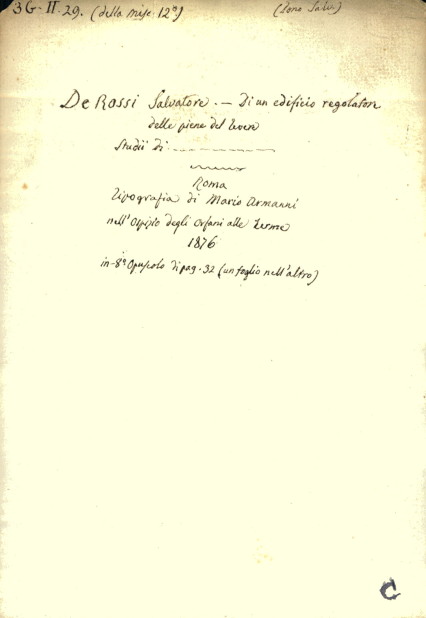 3G-II-29. (della misc. 12ª) (dono Salv.)
De Rossi Salvatore. — Di un edificio regolatore
delle piene del Tevere
Studii di
Roma
Tipografia di Mario Armanni
nell'Ospizio degli Orfani alle Terme
1876
in-8º Opuscolo di pag. 32 (un foglio nell'altro)
C